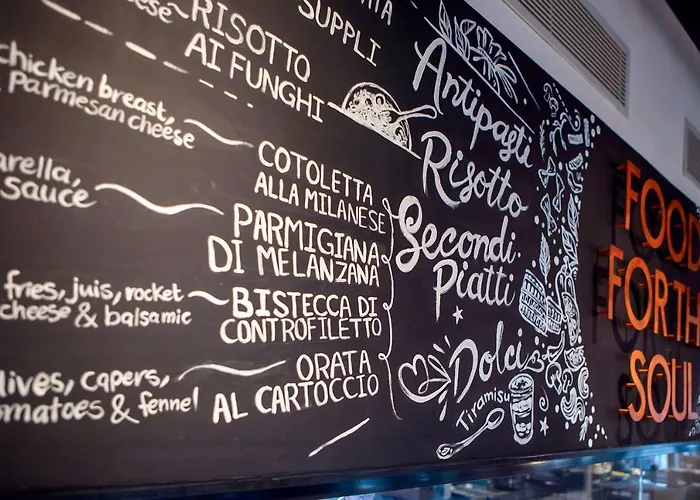 cheese
RISOTTO
AI FUNGHI
SUPPLI
chicken breast,
Parmesan cheese
COTOLETTA
ALLA MILANESE
sauce
PARMIGIANA
DI MELANZANA
fries, juis, rocket
cheese & balsamic
BISTECCA DI
CONTROFILETTO
capers,
& fennel
ORATA
AL CARTOCCIO
Antipasti
Risotto
Secondi
Piatti
Dolci
Tiramisu
FOOD
FOR THE
SOUL